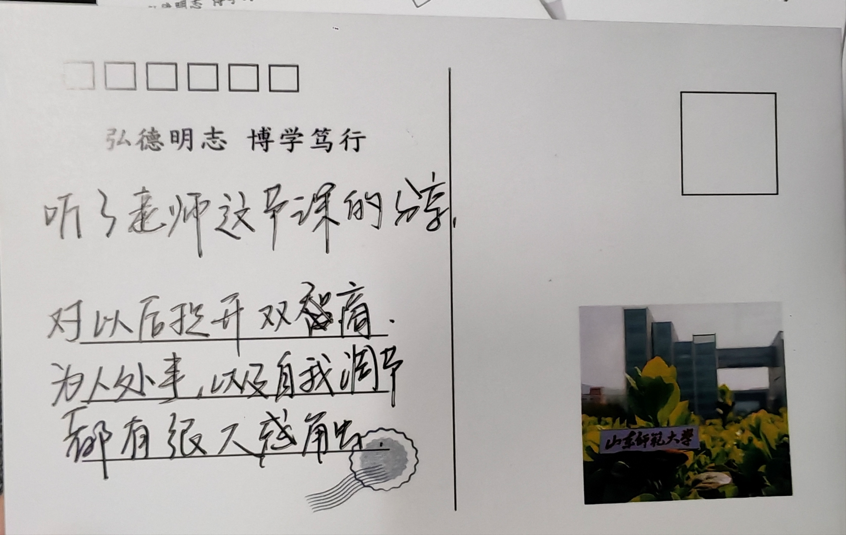 弘德明志 博学笃行
听了老师这节课的分享,
对以后提升双商.
为人处事,以及自我调节
都有很大感触.
山东师范大学